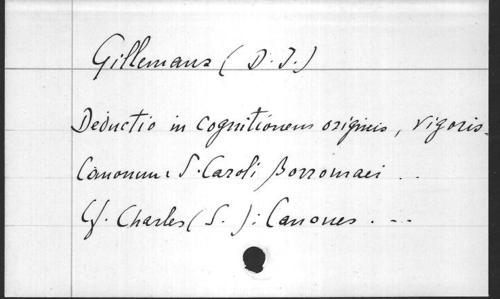 Gillemans (D. J.)
Deductio in cognitionem originis, vigoris.
Canonum S. Caroli Borromaei . .
Cf. Charles (S.): Canones . --